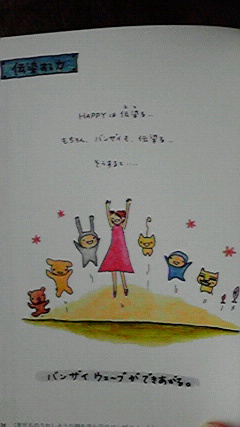 伝染する力
HAPPYは伝染る…
もちろん、バンザイも、伝染る…
そうすると……
バンザイ ウェーブが できあがる。